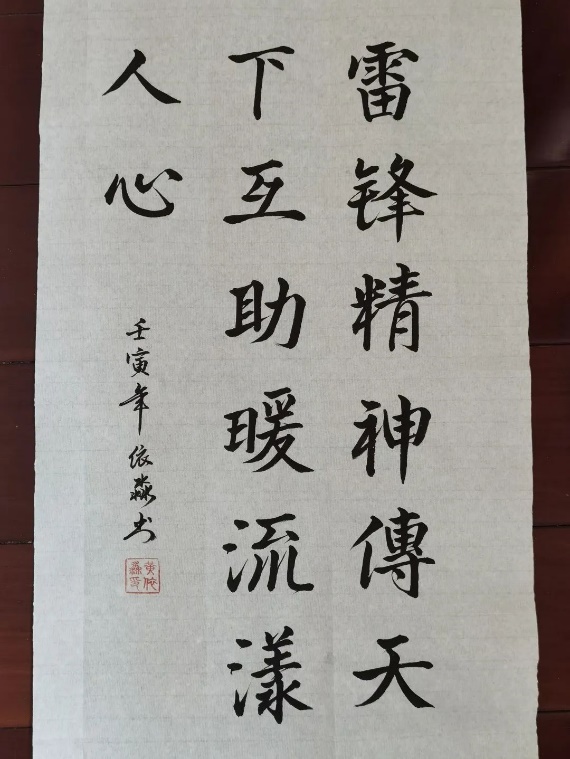 雷锋精神傳天
下互助暖流漾
人心
壬寅年依淼书
黄依淼印